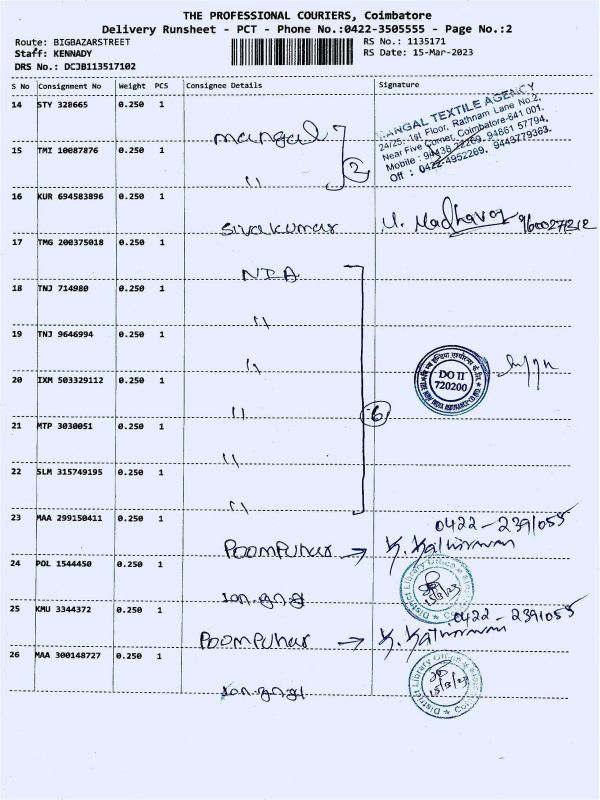 THE PROFESSIONAL COURIERS, Coimbatore
Delivery Runsheet - PCT - Phone No.:0422-3505555 - Page No.:2
Route: BIGBAZARSTREET
Staff: KENNADY
DRS No.: DCJB113517102
RS No.: 1135171
RS Date: 15-Mar-2023
S No Consignment No Weight PCS Consignee Details Signature
14 STY 328665 0.250 1 mangal
MANGAL TEXTILE AGENCY
24/25, 1st Floor, Rathnam Lane No.2,
Near Five Corner, Coimbatore-641 001.
Mobile : 94436 22269, 94861 57794,
Off : 0422-4952269, 9443779363.
15 TMI 10087876 0.250 1 " 2
16 KUR 694583896 0.250 1 Sivakumar
17 TMG 200375018 0.250 1 NIA
18 TNJ 714980 0.250 1 "
19 TNJ 9646994 0.250 1 "
20 IXM 503329112 0.250 1 " 6
DO II
720200
21 MTP 3030051 0.250 1 "
22 SLM 315749195 0.250 1 "
23 MAA 299150411 0.250 1 Poompuhar → 0422-2391055
24 POL 1544450 0.250 1
District Library Office
15/3/23
25 KMU 3344372 0.250 1 Poompuhar → 0422-2391055
26 MAA 300148727 0.250 1
District Library Office
15/3/23